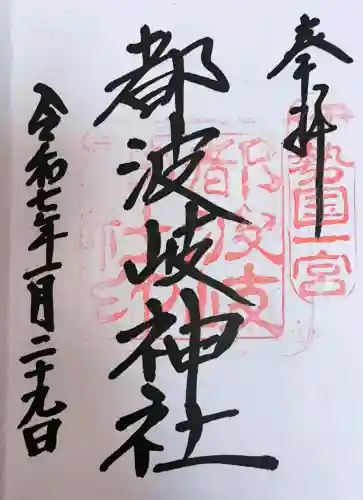 奉拝
伊勢国一宮
都波岐神社
都波岐神社印
令和七年一月二十九日